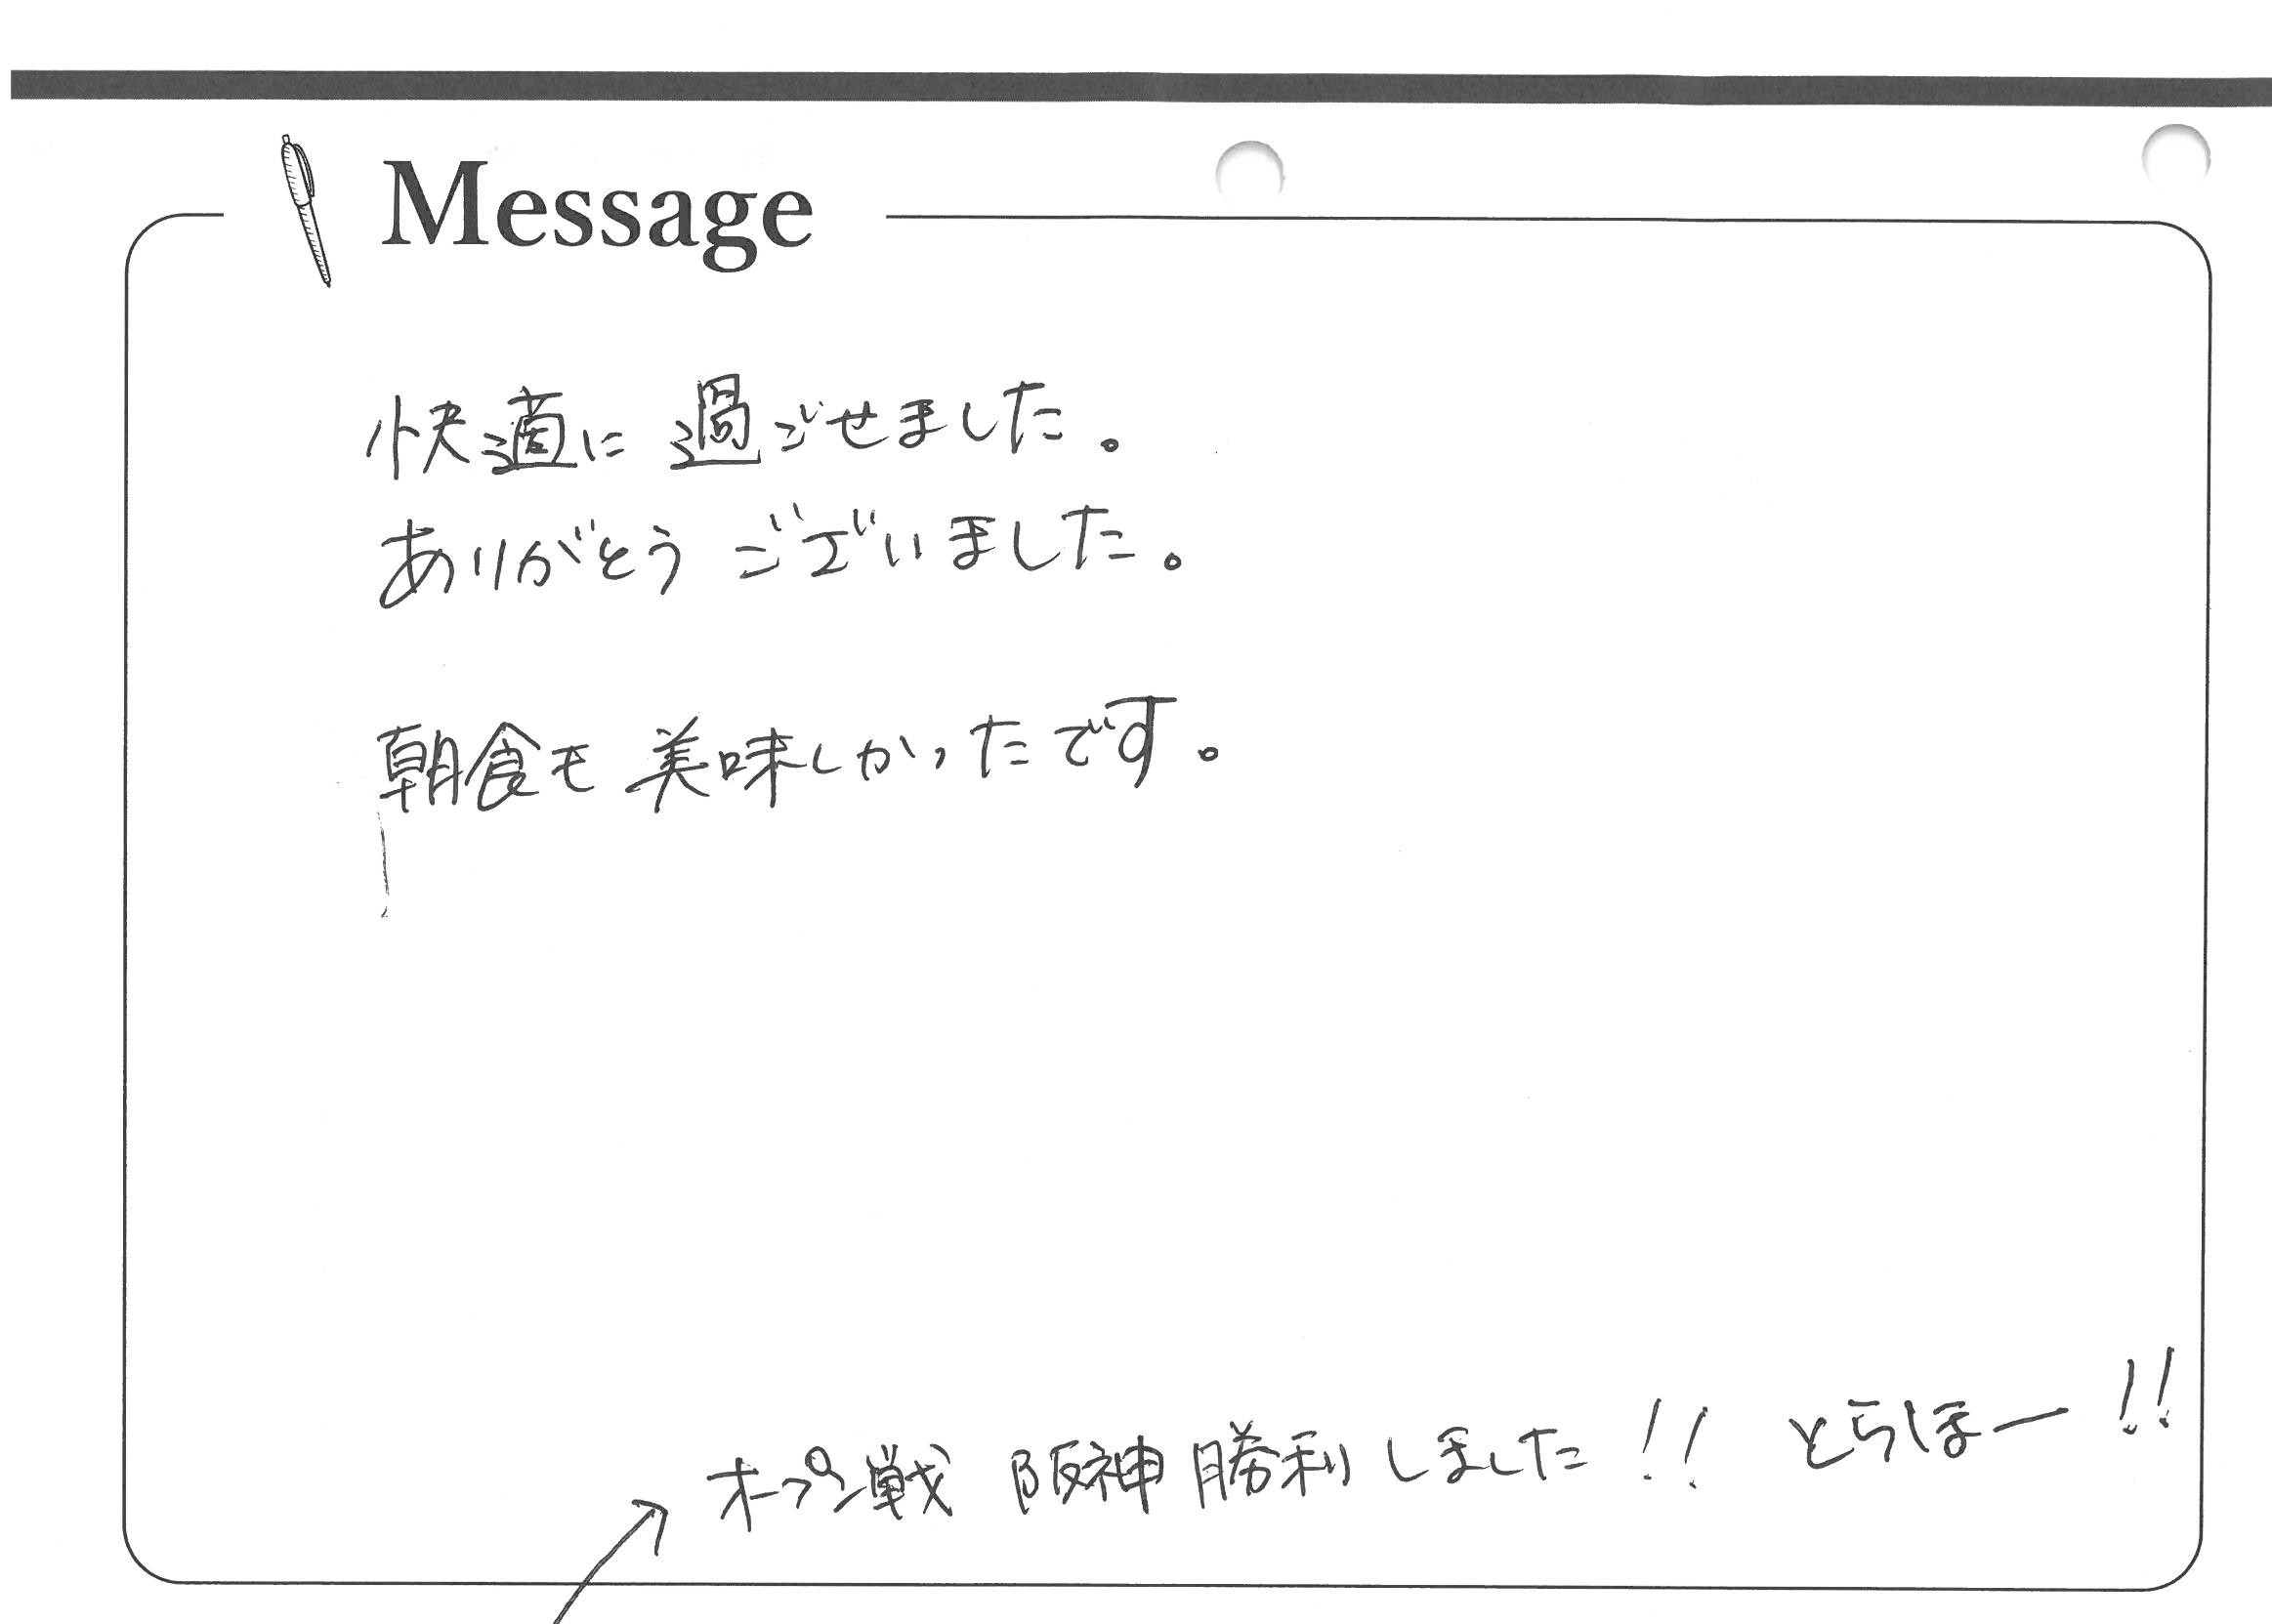 Message
快適に過ごせました。
ありがとうございました。
朝食も美味しかったです。
オープン戦 阪神勝利しました!! とらほー!!